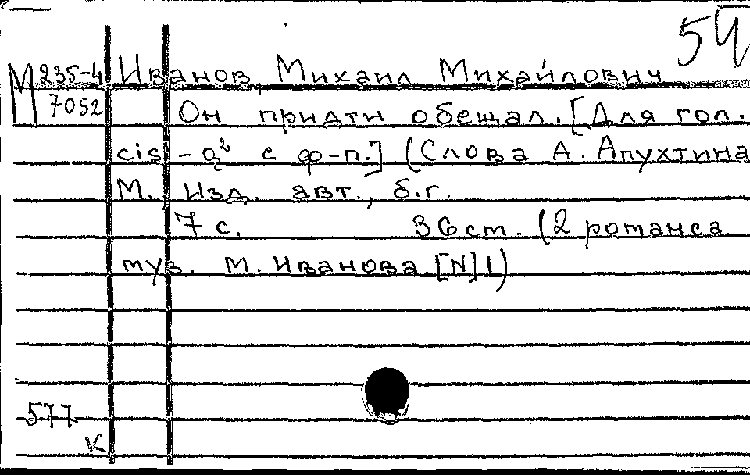 54
М 235-4 Иванов, Михаил Михайлович
7052 Он придти обещал. [Для гол.
cis - a² с ф-п.] (Слова А. Апухтина
М. Изд. авт., б.г.
7 с. 36 см. (2 романса
муз. М. Иванова [N] 1)
577
К